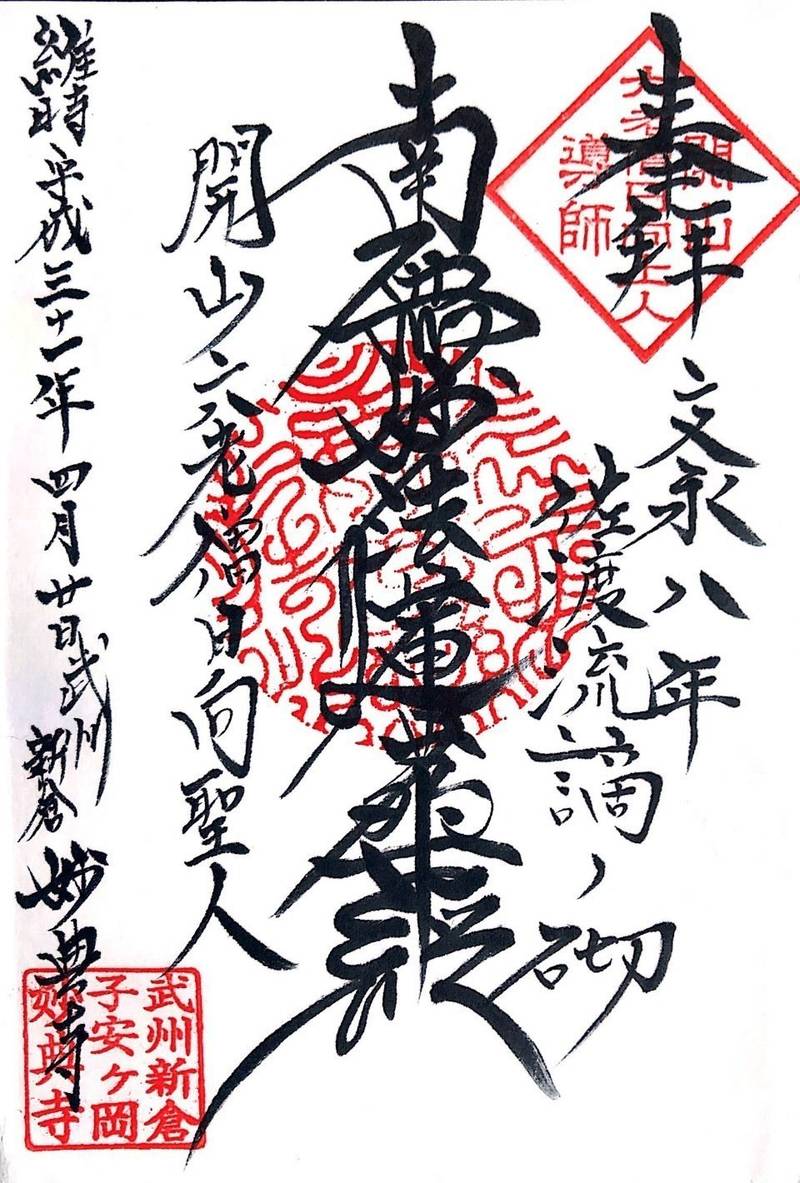 奉拝
開山
六老僧日向上人
導師
文永八年
佐渡流謫ノ砌
南無妙法蓮華経
開山六老僧日向聖人
維時平成三十一年四月廿日武州新倉妙典寺
武州新倉
子安ヶ岡
妙典寺